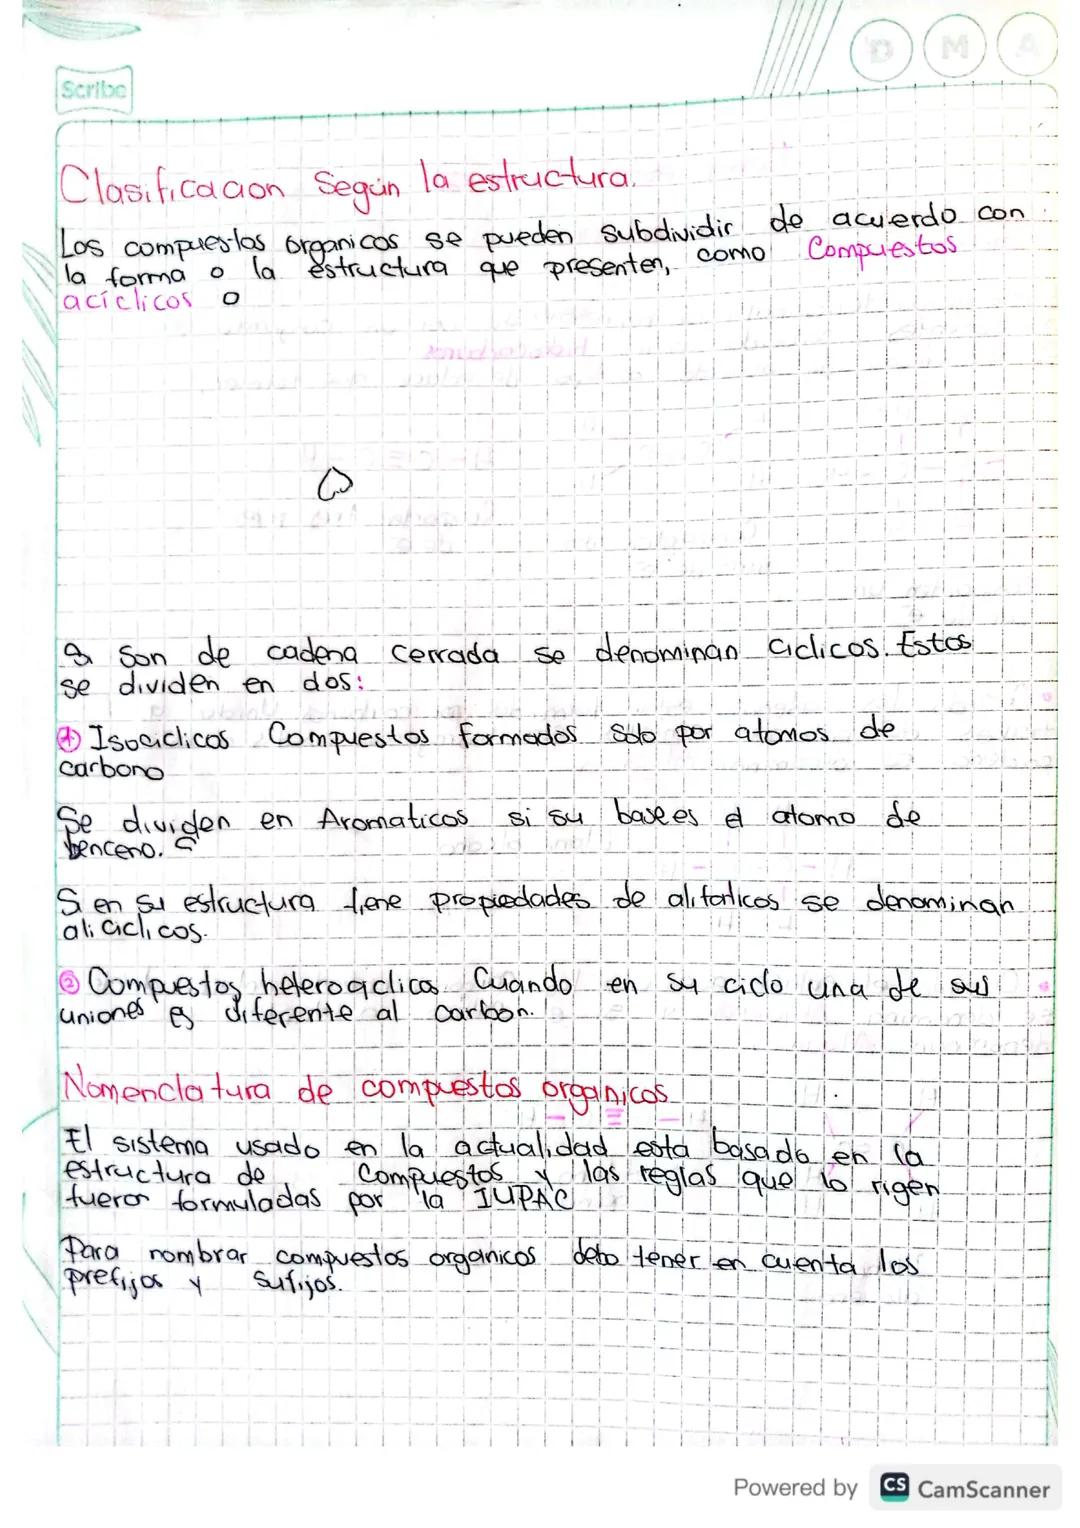 D M A
Scribe
Clasificacion Según la estructura.
Los compuestos organicos se pueden subdividir de acuerdo con
la forma o la estructura que presenten, como Compuestos
acíclicos o
Si son de cadena cerrada se denominan Ciclicos. Estos
se dividen en dos:
1 Isociclicos Compuestos formados solo por atomos de
carbono
Se dividen en Aromaticos si su base es el atomo de
benceno. S
Si en su estructura tiene propiedades de alifaticos se denominan
aliciclicos.
2 Compuestos heterociclicos Cuando en su ciclo una de sus
uniones es diferente al carbon.
Nomenclatura de compuestos organicos
El sistema usado en la actualidad esta basado en la
estructura de compuestos y las reglas que lo rigen
fueron formuladas por la IUPAC
Para nombrar compuestos organicos debo tener en cuenta los
prefijos y sufijos.
Powered by CS CamScanner